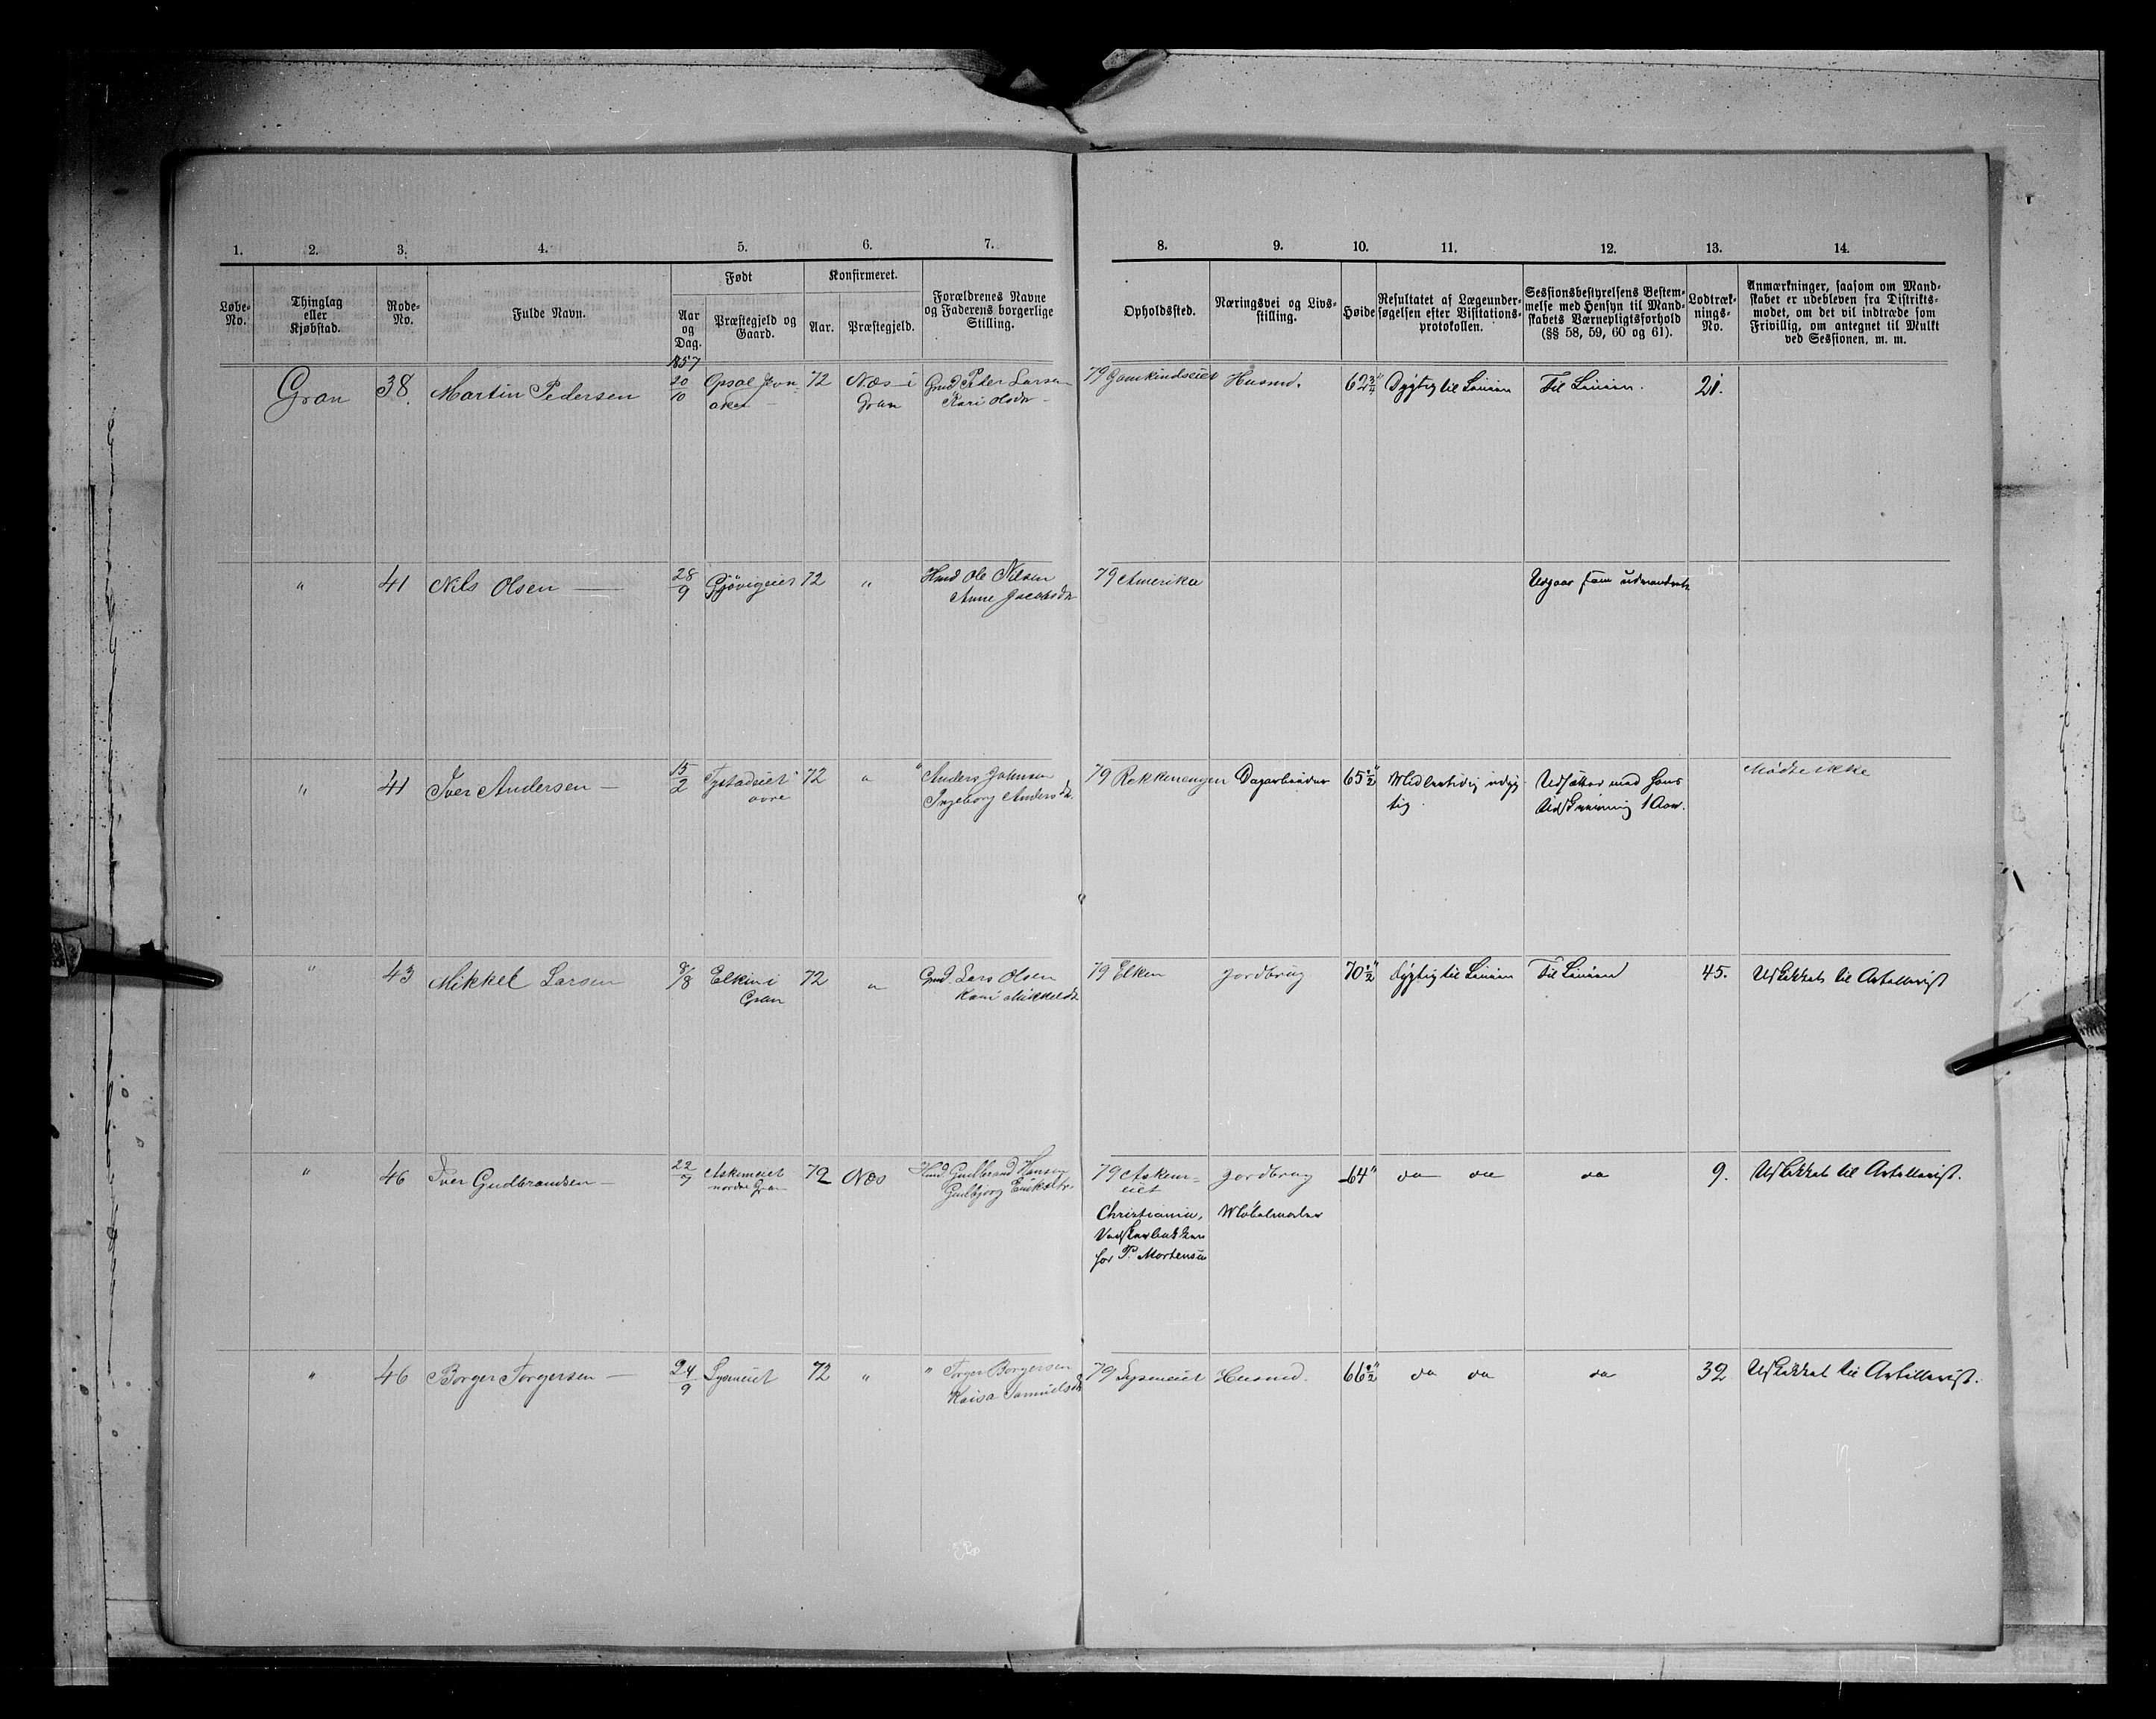 1. 2. 3. 4. 5. 6. 7. 8. 9. 10. 11. 12. 13. 14.
Løbe-No.
Thinglag eller Kjøbstad.
Rode-No.
Fulde Navn.
Født
Aar og Dag.
Præstegjeld og Gaard.
Konfirmeret.
Aar.
Præstegjeld.
Forældrenes Navne og Faderens borgerlige Stilling.
Opholdssted.
Næringsvei og Livsstilling.
Høide
Resultatet af Lægeundersøgelsen efter Visitationsprotokollen.
Sessionsbestyrelsens Bestemmelse med Hensyn til Mandskabets Værnepligtsforhold (§§ 58, 59, 60 og 61).
Lodtræknings-No.
Anmærkninger, saasom om Mandskabet er udebleven fra Distriktsmødet, om det vil indtræde som Frivillig, om antegnet til Mulkt ved Sessionen, m. m.
1857
Gran 38. Martin Pedersen 20/10 Opsal 72 Næs i Gmd Peter Larsen 79 Husmd. 62 3/4" Dygtig til Linien Til Linien. 21.
Gran Kari Olsdr
" 41 Nils Olsen 28/9 Gjøvigeiet 72 " Hmd Ole Nilsen 79 Amerika Udgaar som udvandret
Anne Jacobsdr
" 41 Iver Andersen 15/2 72 " " Anders Johnsen 79 Rekkenengen Dagarbeider 65 1/2" Midlertidig udyg- Udsættes med hans Mødte ikke
øvre Ingeborg Andersdr. tig. Udskrivning 1 Aar.
" 43 Mikkel Larsen 8/8 Elken i 72 " Gmd. Lars Olsen 79 Elken Jordbrug 70 1/2" Dygtig til Linien Til Linien 45. Udskikket til Artillerist
Gran Kari Mikkelsdr
" 46 Iver Gudbrandsen 22/7 Askimeiet 72 Næs Hmd Gudbrand Hansen 79 Askim- Jordbrug 64" do do do 9. Udskikket til Artillerist.
nordre Gran Gudbjørg eiet
Christiania, Møbelmaler
for P. Mortensen
" 46 Borger Torgersen 24/9 Lysmeiet 72 " " Torger Borgersen 79 Lysmeiet Husmd. 66 1/2" do do do 32 Udskikket til Artillerist.
Kaisa Samuelsdr